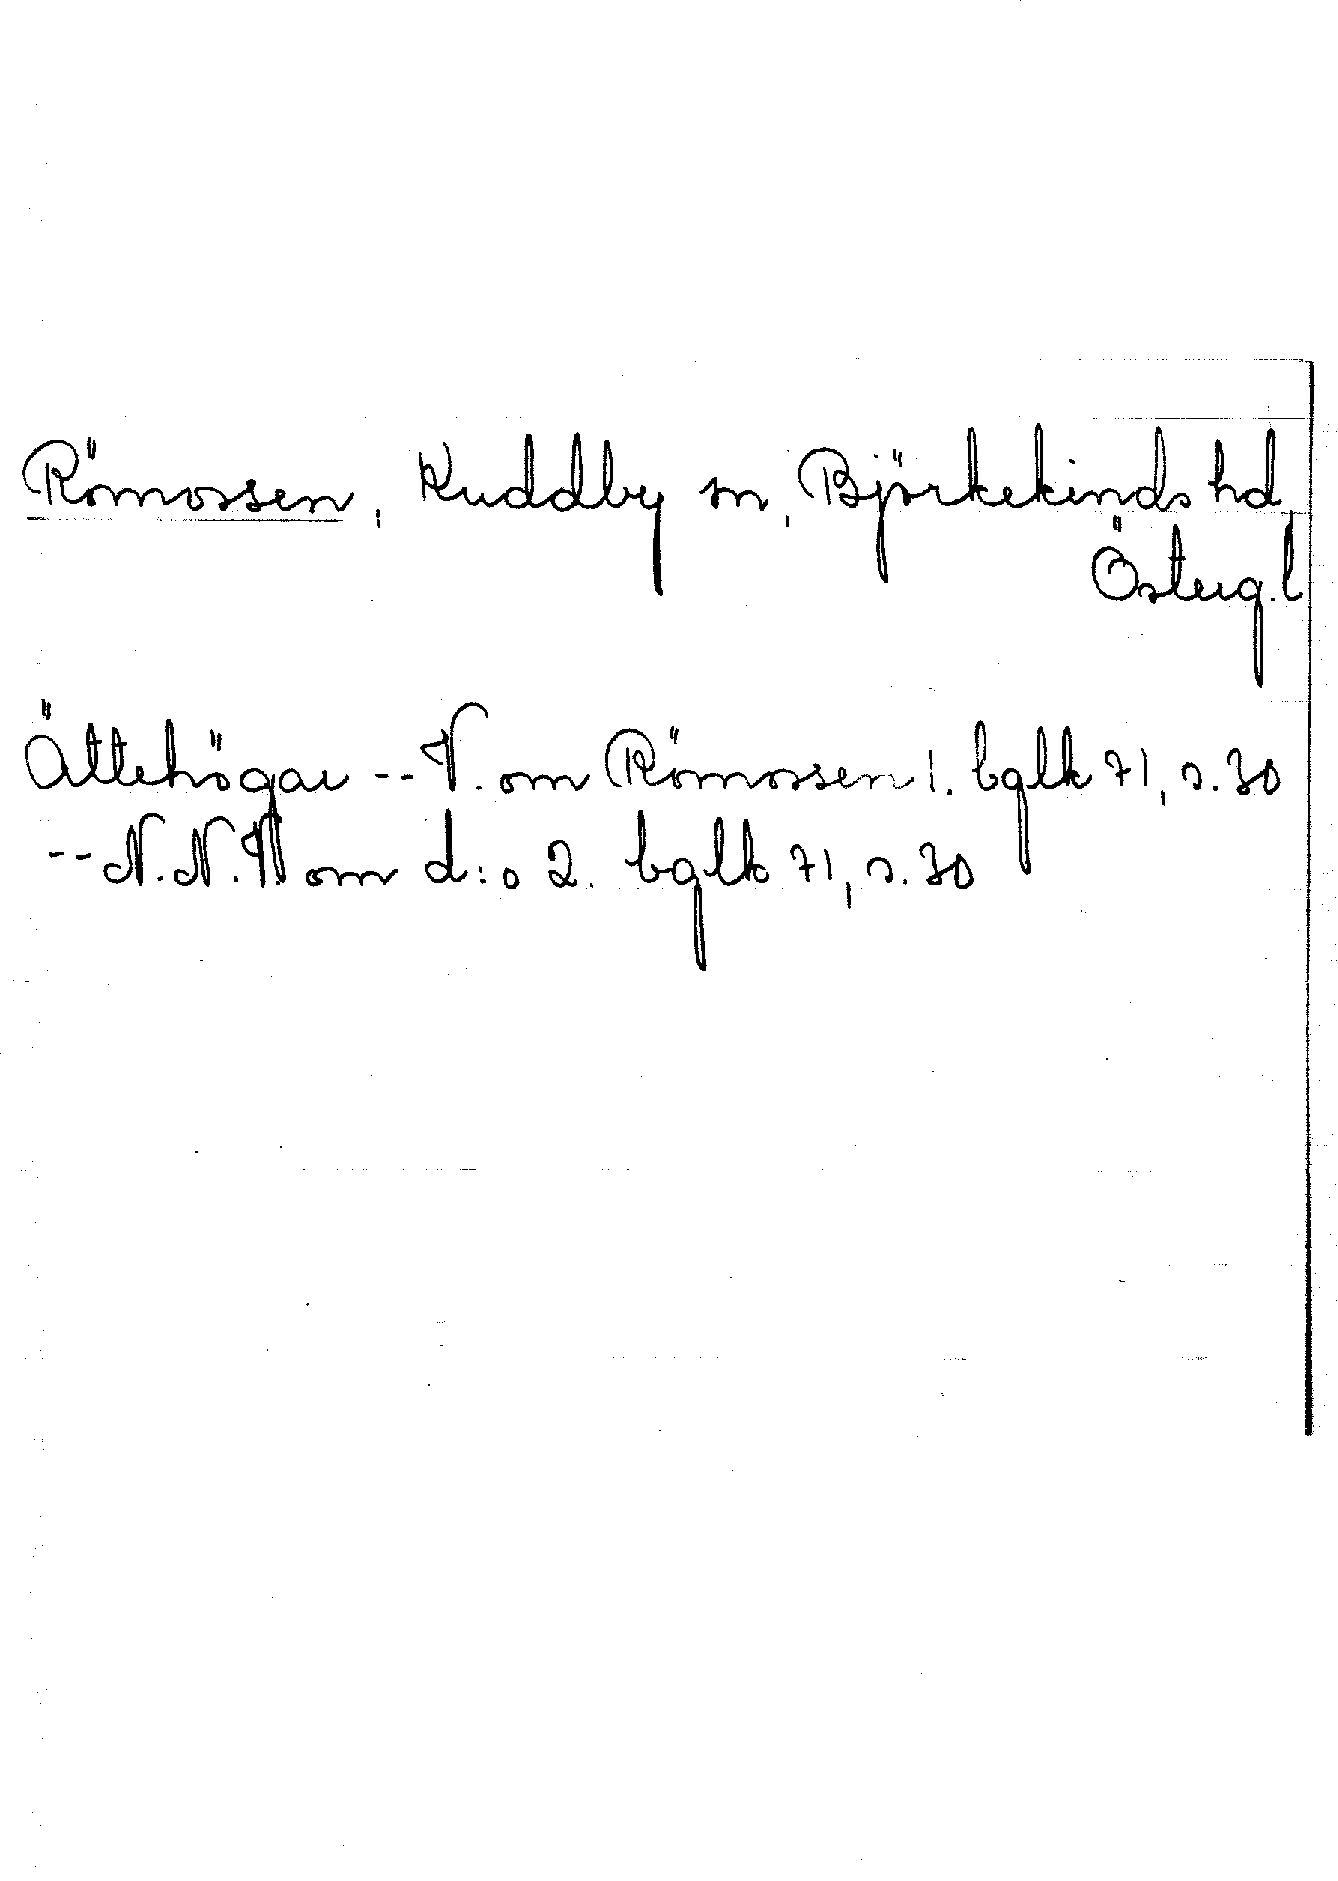 Römossen, Kuddby sn, Björkekinds hd,
Österg. l
Ättehögar -- V. om Römossen 1. bglk 71, s. 30
-- N.N.V. om d:o 2. bglk 71, s. 30